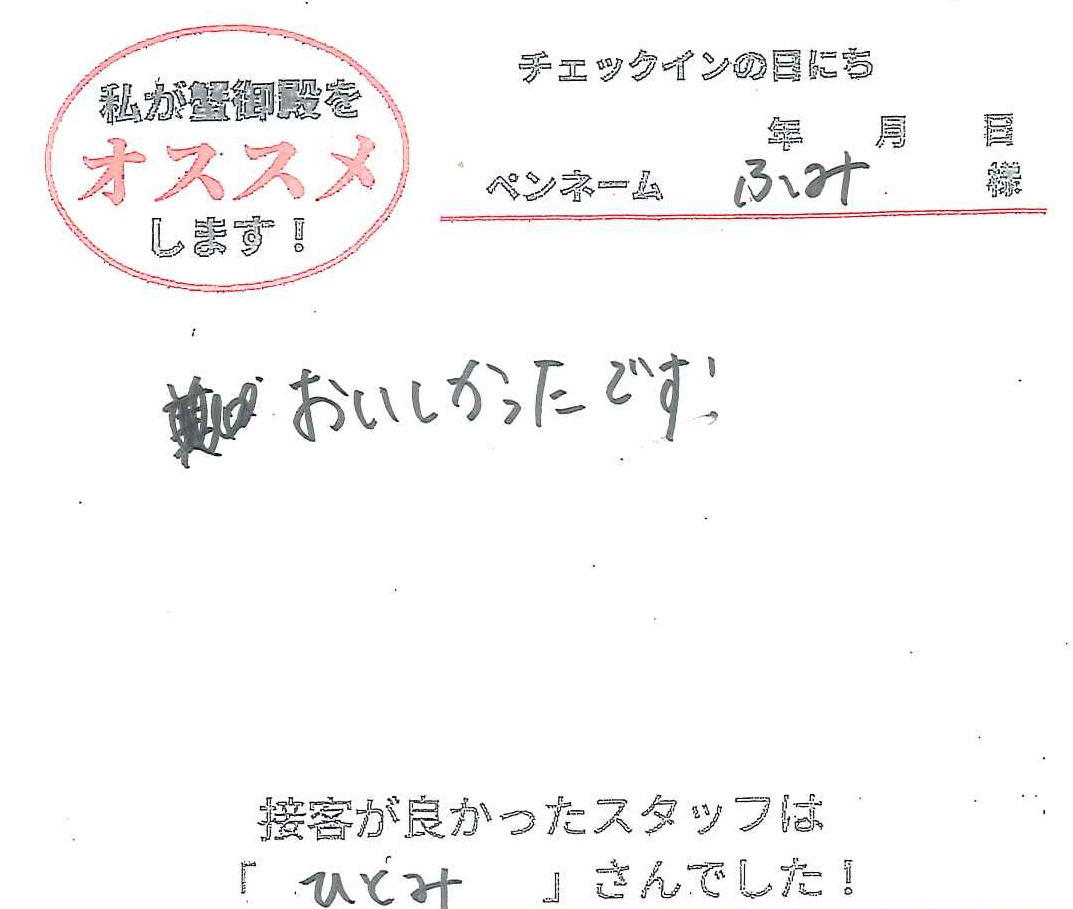 私が蟹御殿を
オススメ
します！
チェックインの日にち
年 月 日
ペンネーム ふみ 様
おいしかったです！
接客が良かったスタッフは
「 ひとみ 」さんでした！